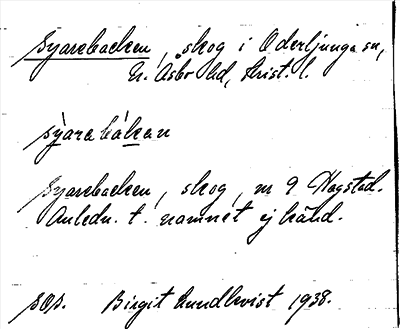 Syarebacken, skog i Oderljunga sn,
N. Åsbo hd, Krist. l.
sỳarebákan
Syarebacken, skog, nr 9 Hagstad.
Anledn. t. namnet ej känd.
Birgit Lundkvist 1938.